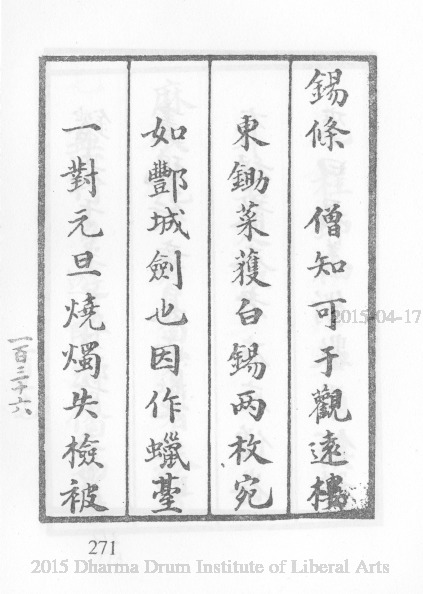 錫條　僧知可于觀遠樓
東鋤菜蒦白錫两枚宛
如酆城劍也因作蠟䑓
一對元旦燒燭失檢被
一百三十六
271
2015-04-17
2015 Dharma Drum Institute of Liberal Arts